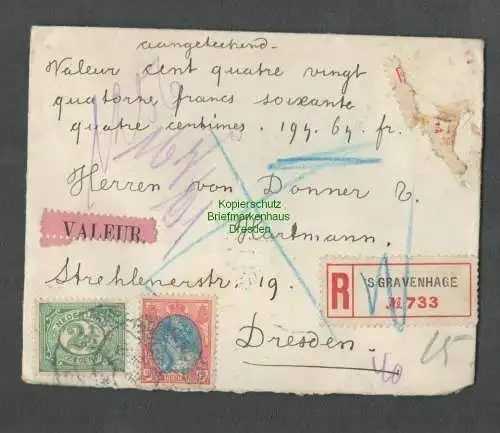 aangeteekend.
Valeur cent quatre vingt
quatorze francs soixante
quatre centimes. 194.64 fr.
Herren von Donner &
Kopierschutz
Briefmarkenhaus
Dresden
VALEUR.
Hartmann.
Strehlenerstr. 19.
R
'S GRAVENHAGE
№ 733
NEDERLAND
2½
CENT
Dresden.
40